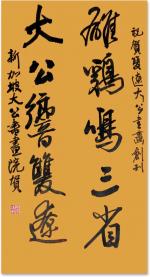 祝賀雙遼大公書畫創刊
雄鷄鳴三省
大公響雙遼
新加坡大公書畫院賀